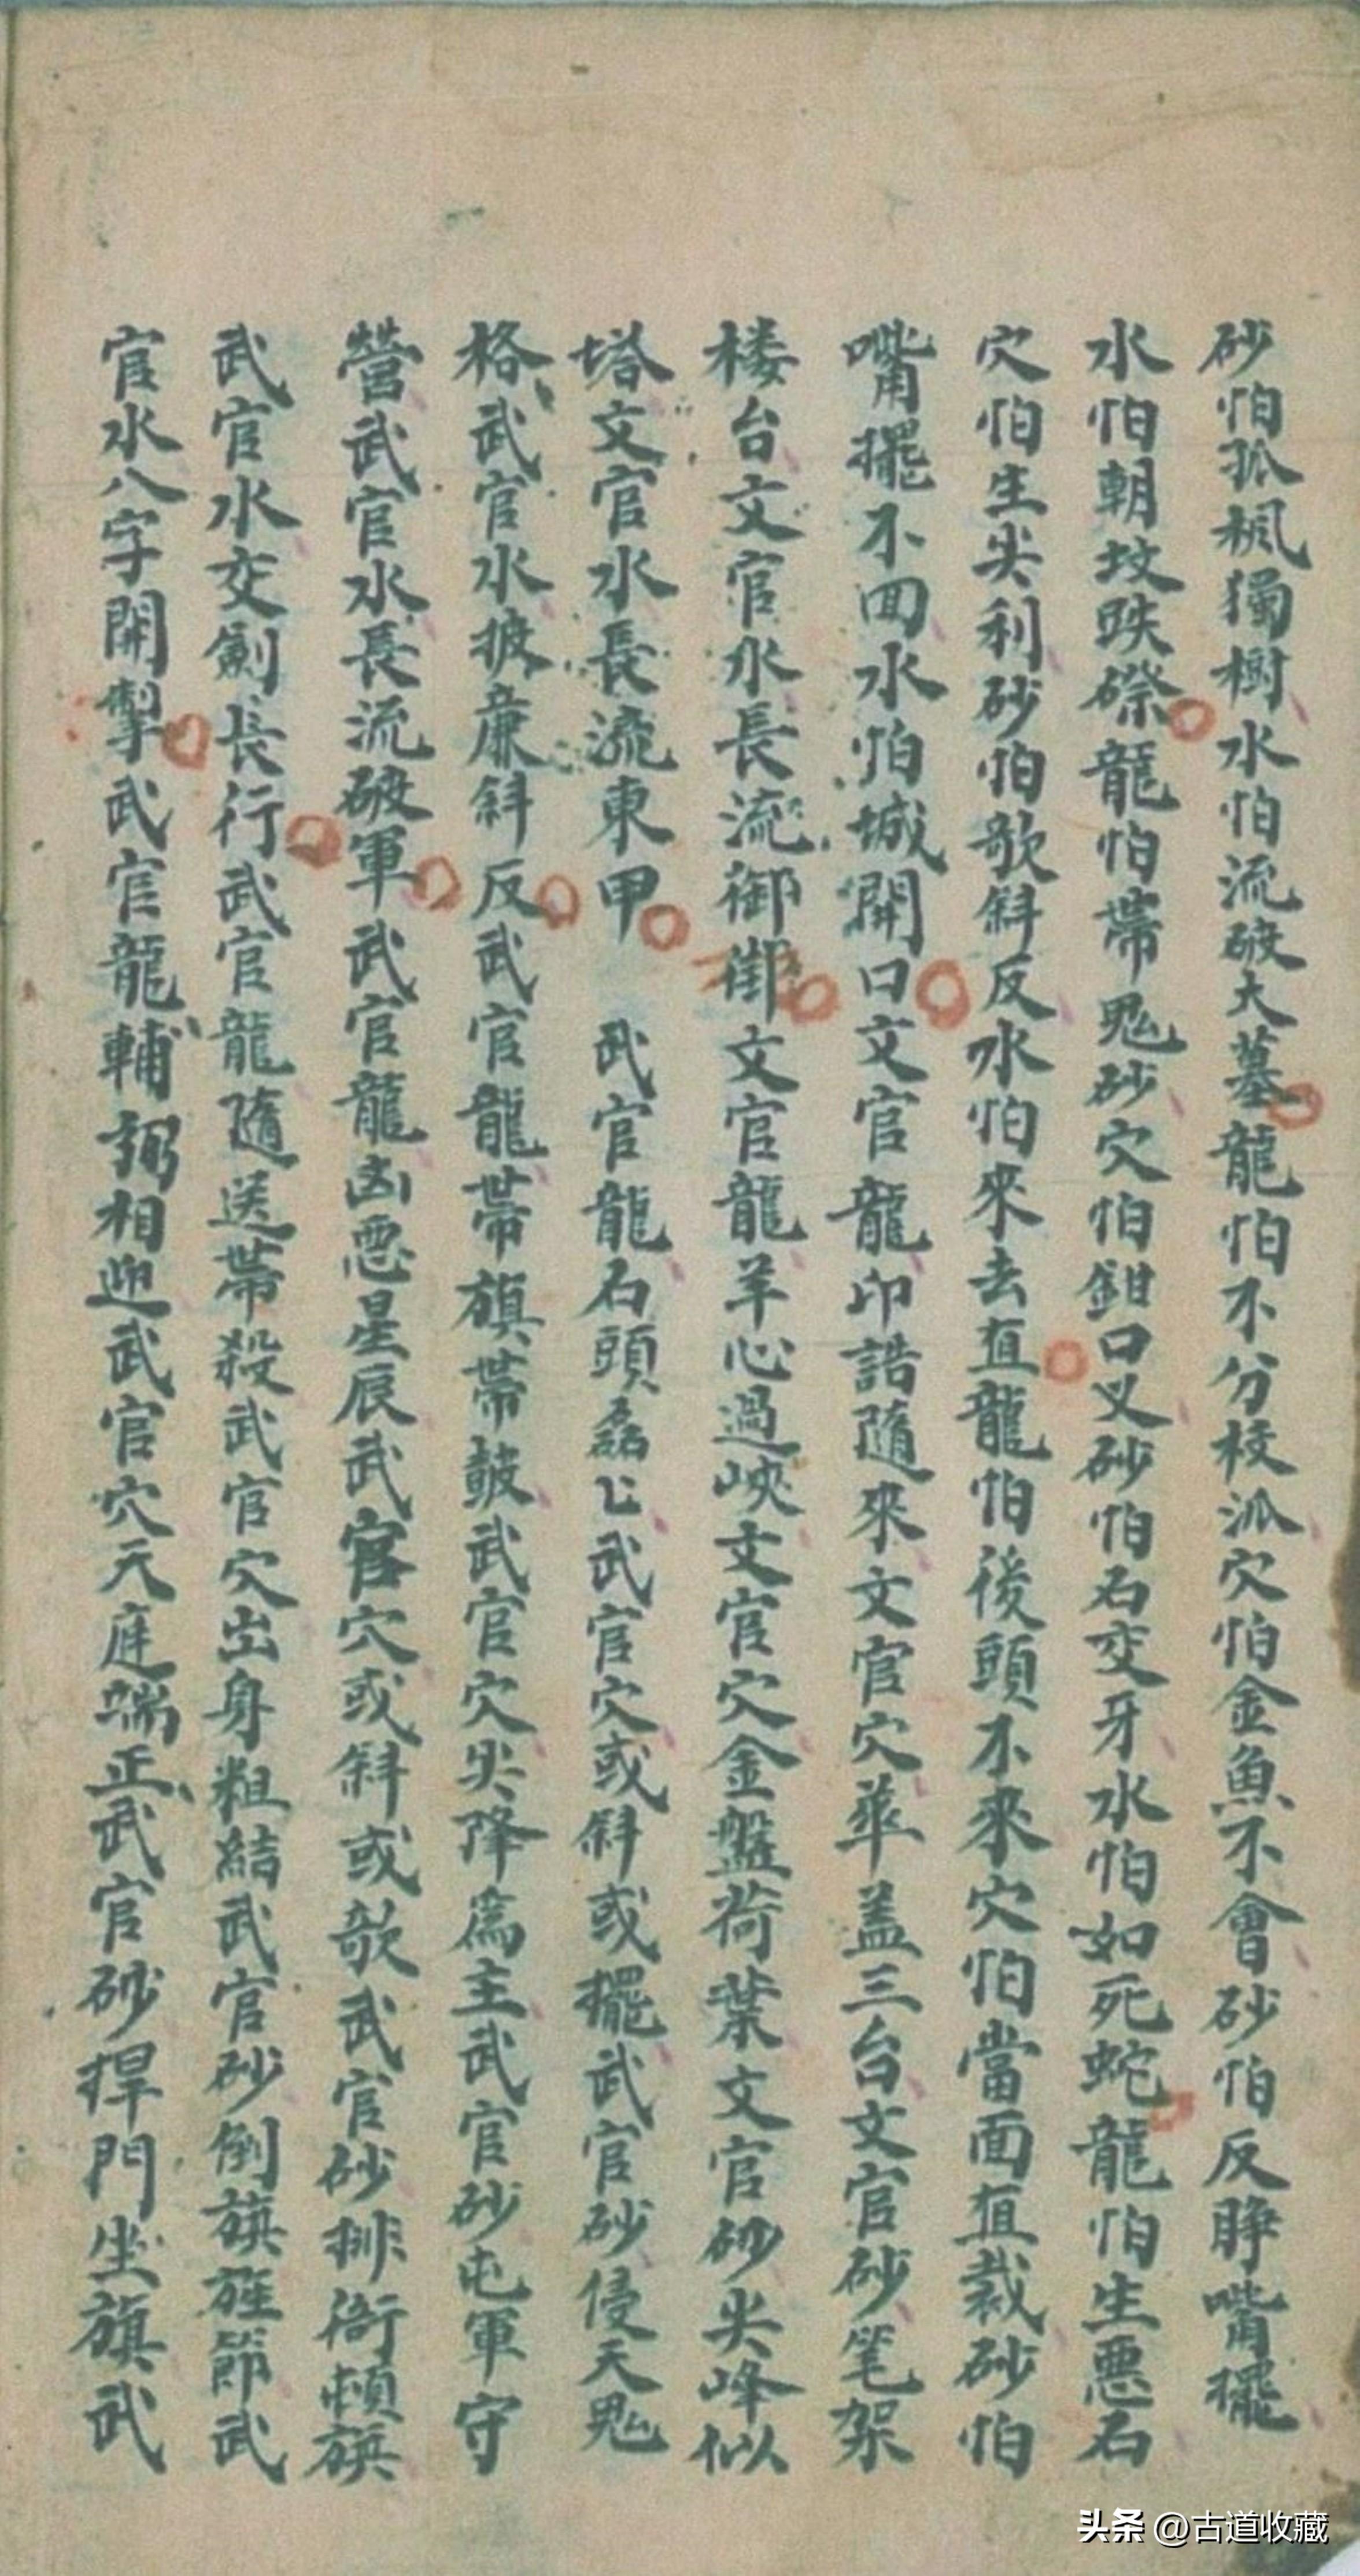 砂怕孤楓獨樹水怕流破大墓龍怕不分枝派穴怕金魚不會砂怕反睁嘴擺
水怕朝坟跌磜龍怕帶鬼砂穴怕鉗口叉砂怕石交牙水怕如死蛇龍怕生惡石
穴怕生尖利砂怕欹斜反水怕來去直龍怕後頭不來穴怕當面直裁砂怕
嘴擺不回水怕城開口文官龍印誥隨來文官穴華盖三台文官砂笔架
楼台文官水長流御街文官龍羊心過峽文官穴金盤荷葉文官砂尖峰似
塔文官水長流東甲 武官龍石頭磊〻武官穴或斜或擺武官砂侵天鬼
格武官水披廉斜反武官龍帶旗帶皷武官穴尖降為主武官砂屯軍守
營武官水長流破軍武官龍凶惡星辰武官穴或斜或欹武官砂排衙頓旗
武官水交劍長行武官龍隨送帶殺武官穴出身粗結武官砂倒旗旌節武
官水八字開掣武官龍輔弼相迎武官穴天庭端正武官砂捍門坐旗武
头条 @古道收藏